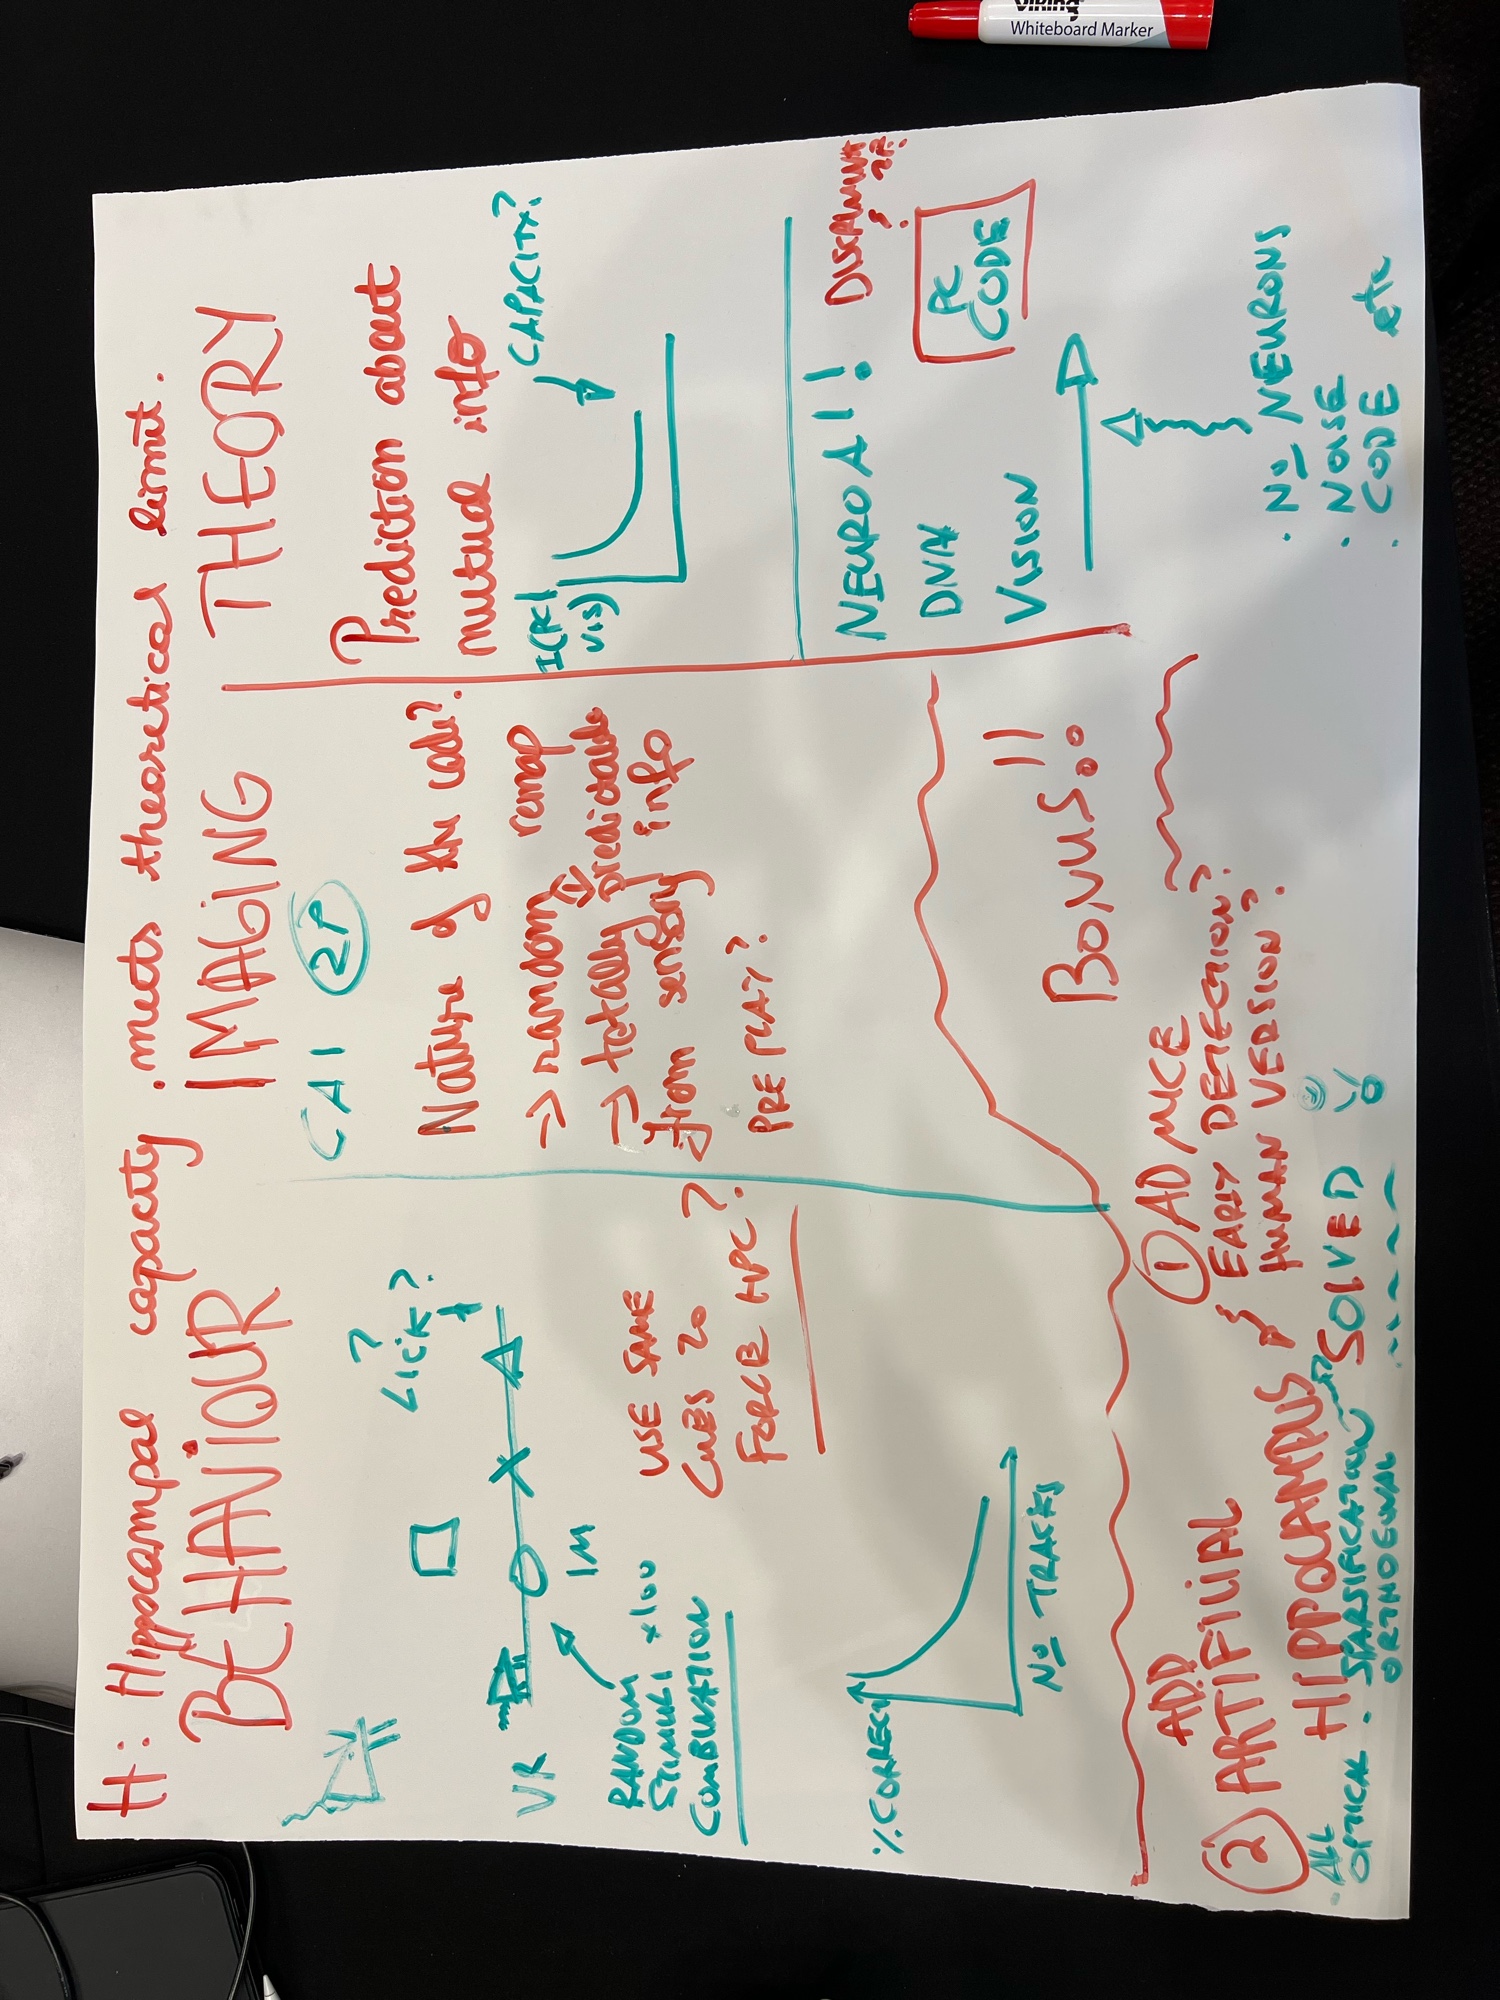 H: Hippocampal capacity meets theoretical limit.
BEHAVIOUR
? LICK?
VR
1M
RANDOM
STIMULI x100
COMBINATION
USE SAME
CUES TO
FORCE HPC?
% CORRECT
No TRACKS
IMAGING
CA1 2P
Nature of the code?
→ random remap
→ totally predictable
from sensory info
PRE PLAY?
THEORY
Prediction about
mutual info
I(PC|
VIS)
CAPACITY?
NEURO AI!
DNN
VISION
PC
CODE
· No NEURONS
· NOISE
· CODE etc
BONUS!!
① AD MICE
EARLY DETECTION?
HUMAN VERSION?
② ADD
ARTIFICIAL
HIPPOCAMPUS
SOLVED
· ALL
OPTICAL
· SPARSIFICATION
ORTHOGONAL
VIKING
Whiteboard Marker